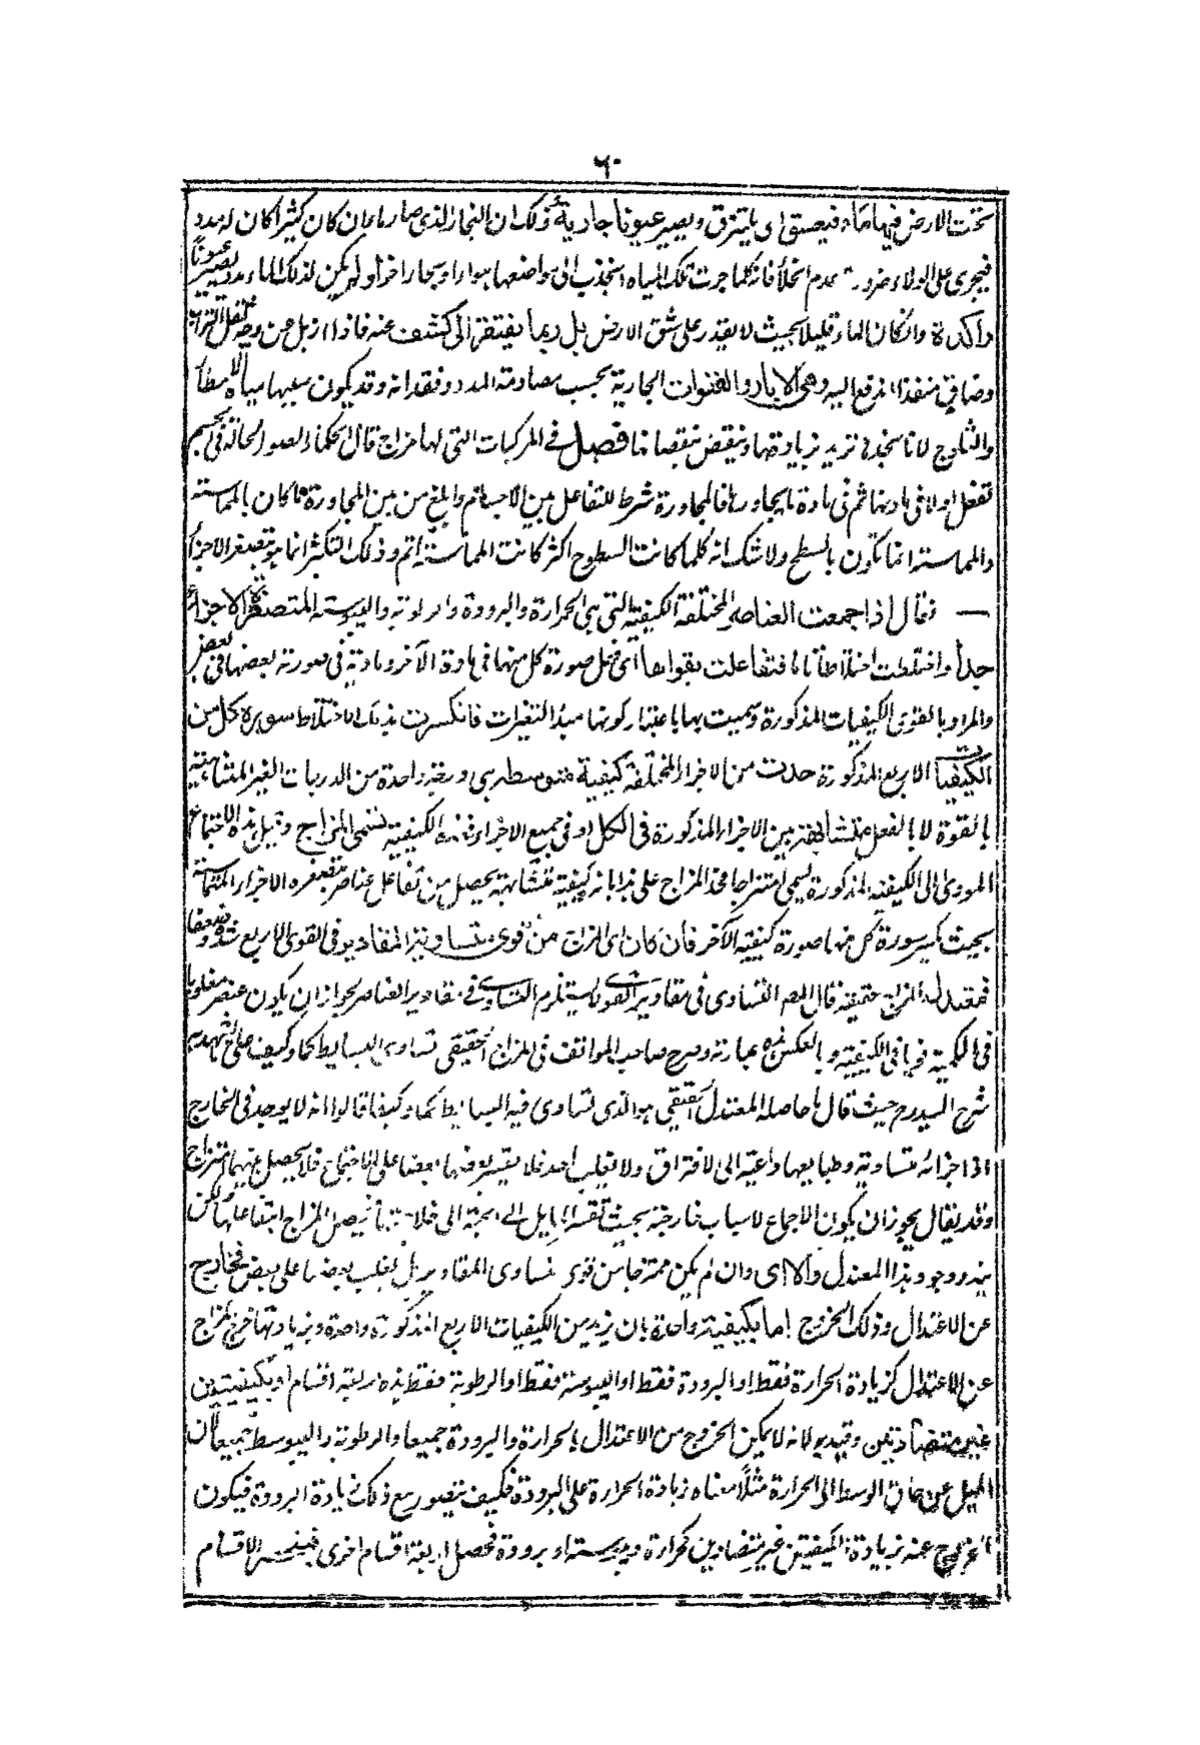 ٦٠
تحت الارض فيها ماء فينشق اى يتمزق ويصير عيونا جارية وذلك ان البخار الذى صار ماء ان كان كثيرا كان له مدد
فيجرى على الولاء ضرورة عدم الخلأ فانه كلما جرت تلك المياه انجذب الى مواضعها هواء او بخار اخر او لم يكن لذلك الماء مدد يصير عيونا
راكدة وان كان الماء قليلا بحيث لا يقدر على شق الارض بل ربما يفتقر الى كشف عنه فاذا ازيل عن وجهه ثقل التراب
وصادف منفذا اندفع اليه وهى الابار والقنوات الجارية بحسب مصادمة المدد وفقدانه وقد يكون سببها مياه الامطار
والثلوج لانا نجدها تزيد بزيادتها وتنقص بنقصانها فصل فى المركبات التى لها مزاج قال الحكماء الصور الحالة فى الجسم
تفعل اولا فى مادتها ثم فى مادة ما يجاورها فالمجاورة شرط للتفاعل بين الاجسام وابلغ من بين المجاورة ما كان بالمماسة
والمماسة انما تكون بالسطح ولا شك انه كلما كانت السطوح اكثر كانت المماسة اتم وذلك التكثر انما هو بتصغر الاجزاء
— فقال اذا اجتمعت العناصر المختلفة الكيفية التى هى الحرارة والبرودة والرطوبة واليبوسة المتصغرة الاجزاء
جدا واختلطت اختلاطا تاما فتفاعلت بقواها اى فعل صورة كل منها فى مادة الآخر ومادية فى صورته بعضها فى بعض
والمراد بالقوى الكيفيات المذكورة وسميت بها باعتبار كونها مبدأ التغيرات فانكسرت بذلك الاختلاط سورة كل من
الكيفيات الاربع المذكورة حدث من الاجزاء المختلفة كيفية متوسطة هى درجة واحدة من الدرجات الغير المتناهية
بالقوة لا بالفعل متشابهة بين الاجزاء المذكورة فى الكل او فى جميع الاجزاء فهذه الكيفية تسمى المزاج وقبل هذه الاجتماع
المودى الى الكيفية المذكورة يسمى امتزاجا فحد المزاج على هذا بانه كيفية متشابهة يحصل من تفاعل عناصر متصغرة الاجزاء المتماسة
بحيث يكسر سورة كل منها صورة كيفية الآخر فان كان اى المزاج من قوى متساوية المقادير فى القوى الاربع شدة وضعفا
فمعتدل المزاج حقيقة قال المص التساوى فى مقادير القوى لا يستلزم التساوى فى مقادير العناصر لجواز ان يكون عنصر مغلوبا
فى الكمية قويا فى الكيفية وبالعكس هذه عبارته وصرح صاحب المواقف فى المزاج الحقيقى تساوى البسايط كما وكيفا على ما شهد به
شرح السيد رح حيث قال ما حاصله المعتدل الحقيقى هو الذى تساوى فيه البسايط كما وكيفا قالوا انه لا يوجد فى الخارج
اذ اجزائه متساوية وطبايعها داعية الى الافتراق ولا يغلب احد فلا يقسر بعضها بعضا على الاجتماع فلا يحصل بينهما امتزاج
وقد يقال يجوز ان يكون الاجماع لاسباب خارجة بحيث تقسر المايل الى الجهة الى خلاف فيصل المزاج بتفاعلها ولكن
يندر وجود هذا المعتدل والا اى وان لم يكن ممتزجا من قوى متساوى المقادير بل يغلب بعضها على بعض فخارج
عن الاعتدال وذلك الخروج اما بكيفية واحدة بان يزيد من الكيفيات الاربع المذكورة واحدة وبزيادتها خرج المزاج
عن الاعتدال كزيادة الحرارة فقط او البرودة فقط او اليبوسة فقط او الرطوبة فقط فهذه اربعة اقسام او بكيفيتين
غير متضادتين وقيد به لانه لا يمكن الخروج من الاعتدال بالحرارة والبرودة جميعا والرطوبة واليبوسة جميعا لان
الميل عن حاق الوسط الى الحرارة مثلا معناه زيادة الحرارة على البرودة فكيف يتصور مع ذلك زيادة البرودة فيكون
الخروج عنه بزيادة الكيفيتين غير متضادين كحرارة ويبوسة او برودة فحصل اربعة اقسام اخرى فينحصر الاقسام